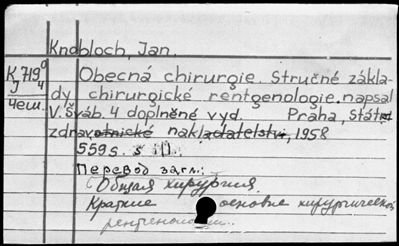 Knobloch, Jan.
K 719⁰ Obecná chirurgie. Stručné základ-
J 4 dy chirurgické rentgenologie. napsal
4еш. V. Šváb. 4 doplněné vyd. Praha, Státní
zdravotnické nakladatelství, 1958
559s. s ill.
Перевод загл.:
Общая хирургия.
Краткие основы хирургической
рентгенологии.